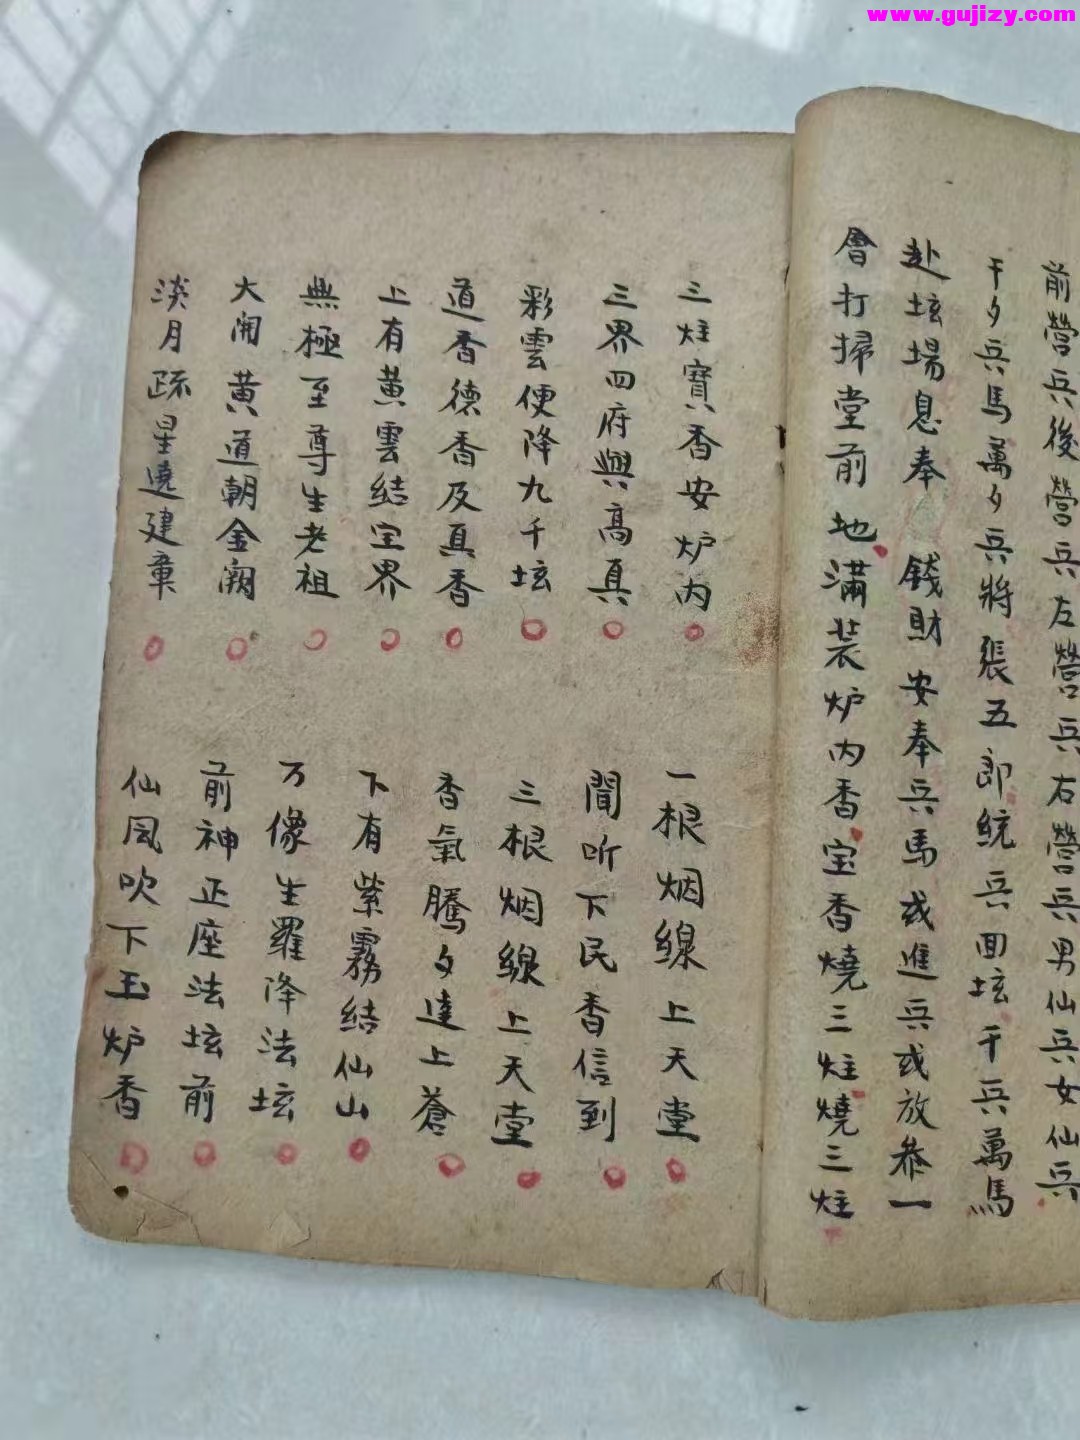 www.gujizy.com
前營兵後營兵左營兵右營兵男仙兵女仙兵
千夕兵馬萬夕兵將張五郎統兵回坛千兵萬馬
赴坛場息奉錢財安奉兵馬或進兵或放恭一
會打掃堂前地滿装炉内香宝香燒三炷燒三炷
三炷寶香安炉内 一根烟線上天堂
三界四府與高真 聞听下民香信到
彩雲便降九千坛 三根烟線上天堂
道香德香及真香 香氣騰夕達上蒼
上有黄雲結宝界 下有紫霧結仙山
無極至尊生老祖 万像生羅降法坛
大闹黄道朝金闕 前神正座法坛前
淡月疏星遶建章 仙風吹下玉炉香